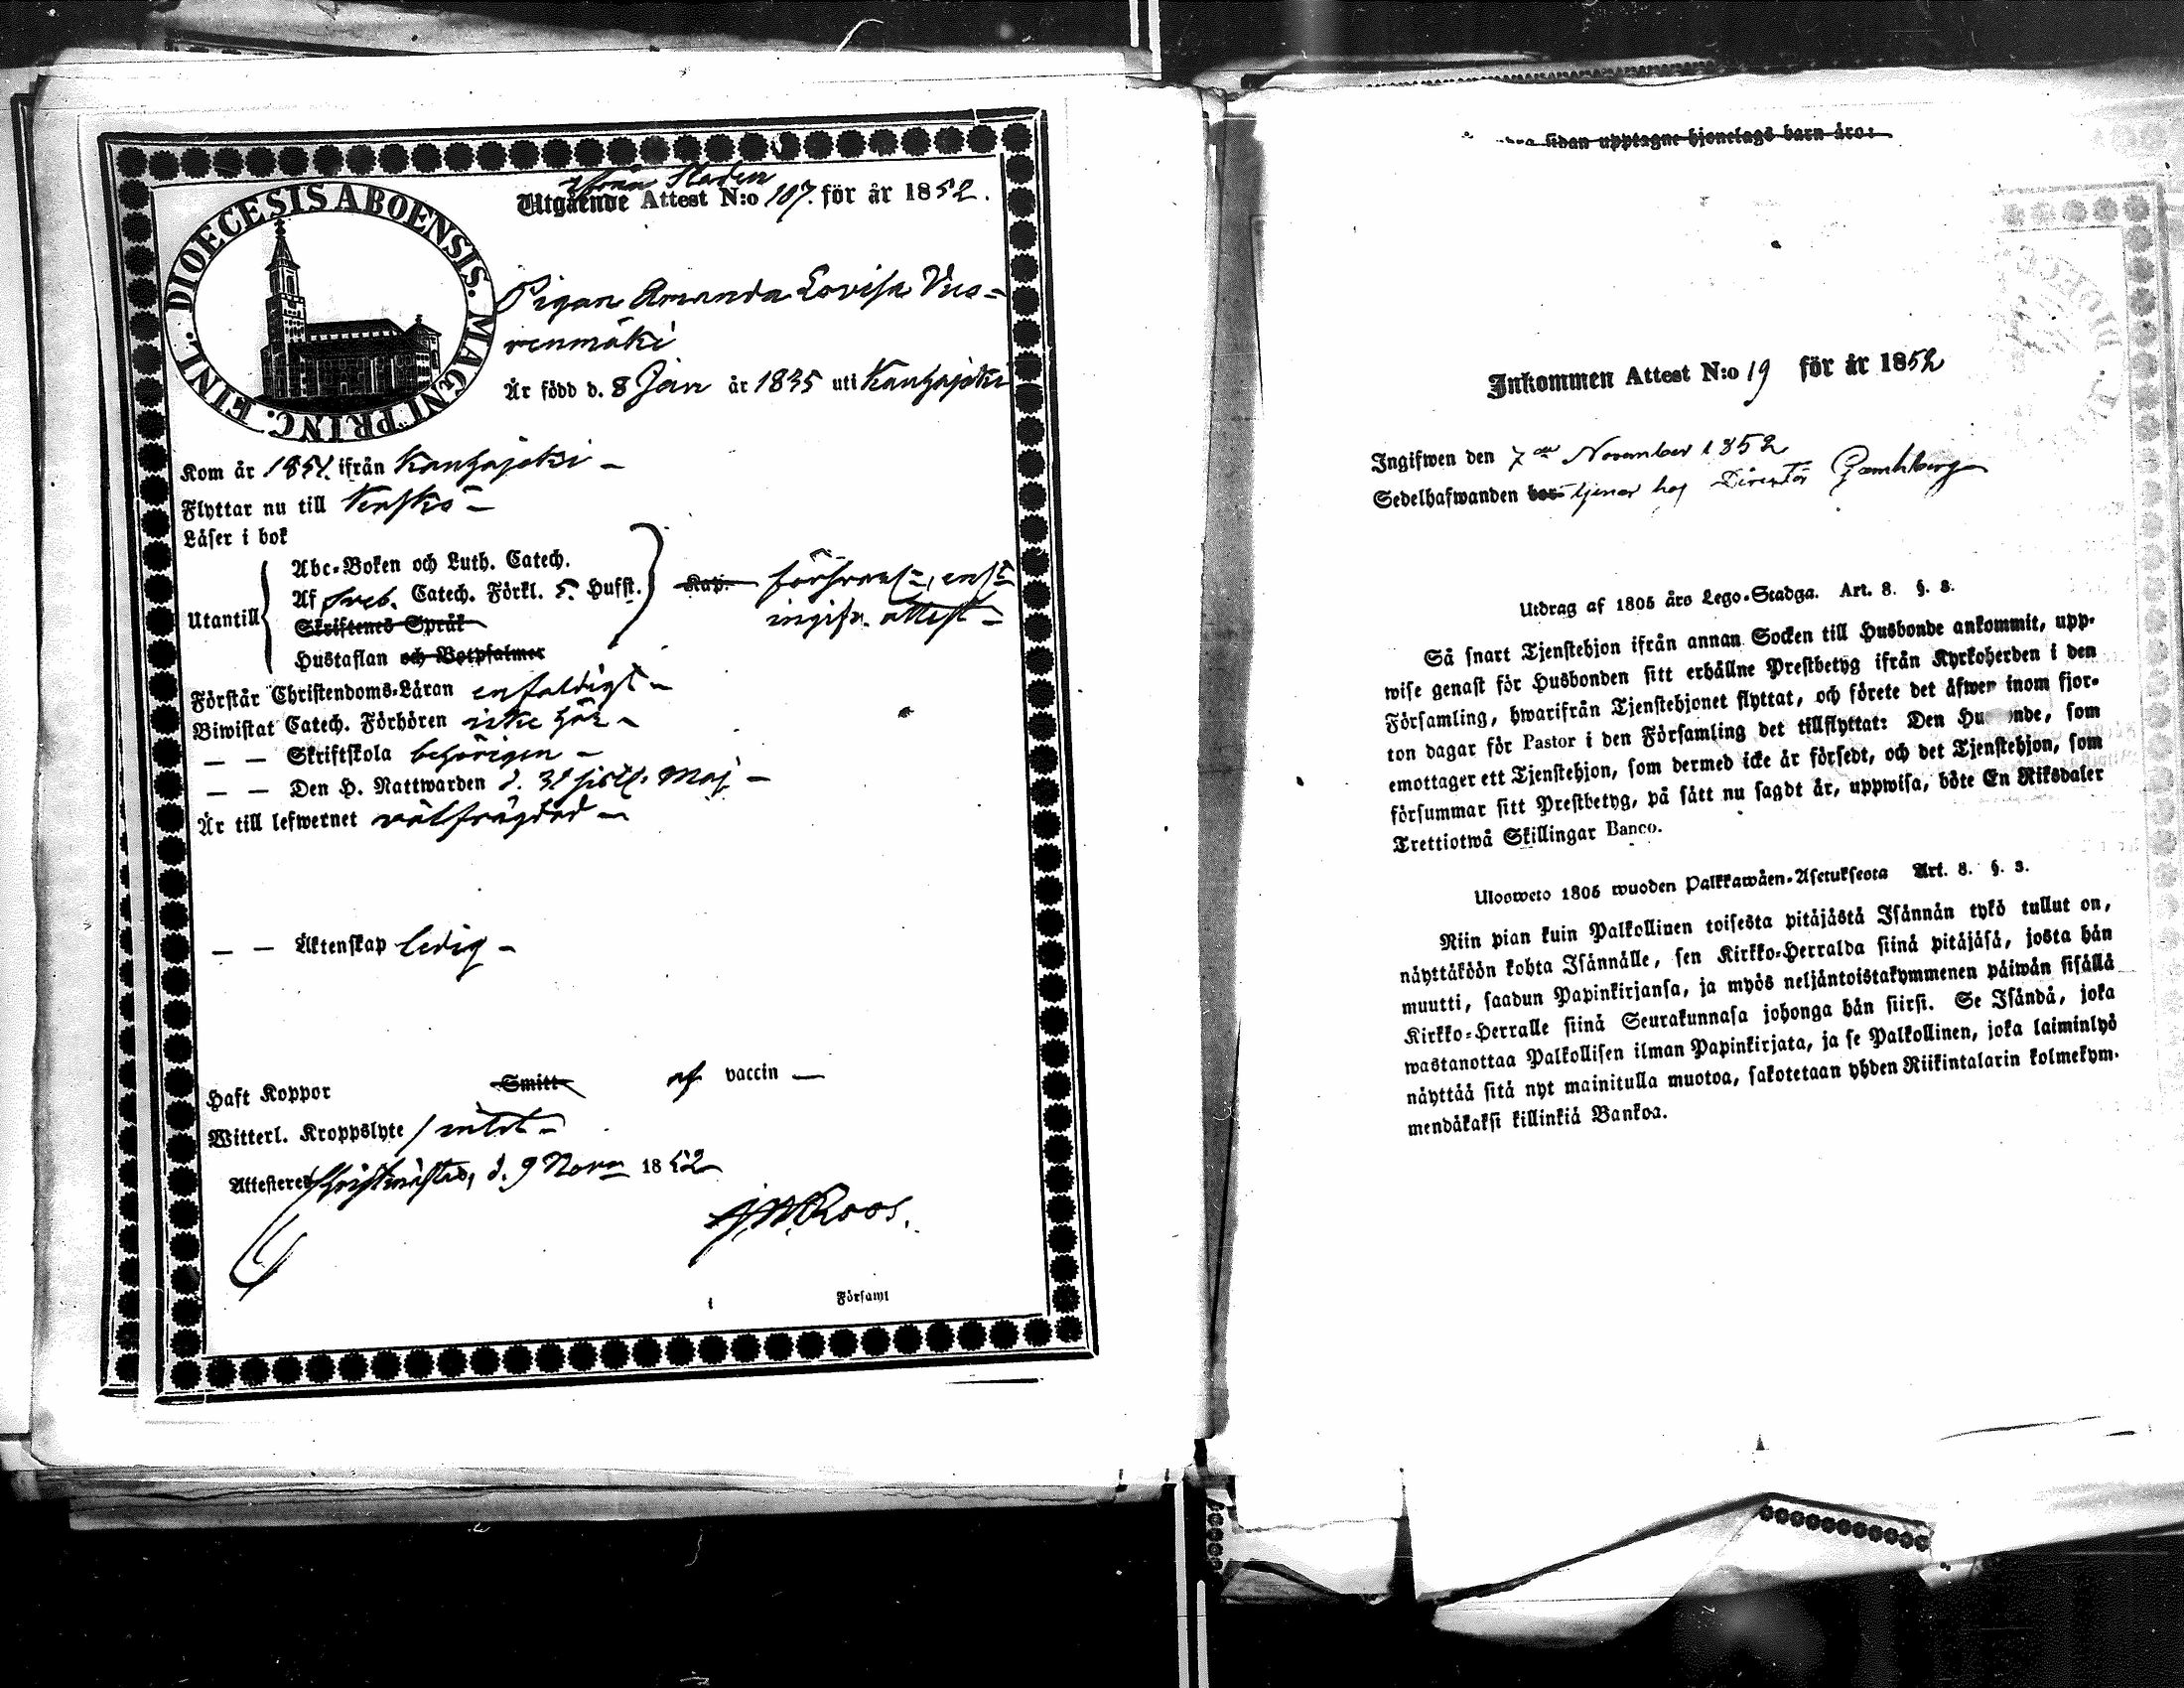 DIOECESIS ABOENSIS. MAGNI PRINC. FINL.
ifrån Staden
Utgående Attest N:o 107. för år 1852.
Pigan Amanda Lovisa Vuo-
renmäki
Är född d. 8 Jan år 1835 uti Kauhajoki
Kom år 1851. ifrån Kauhajoki –
Flyttar nu till Kaskö –
Läser i bok
Utantill
Abc-Boken och Luth. Catech.
Af Sveb. Catech. Förkl. 5. Hufst. Kap. försvarl., enl.
Skriftenes Språk ingifv. attest –
Hustaflan och Botpsalmer
Förstår Christendoms-Läran enfaldigt –
Biwistat Catech. Förhören icke här –
— — Skriftskola behörigen –
— — Den H. Nattwarden d. 31 sistl. Maj –
Är till lefwernet välfrägdad –
— — Äktenskap ledig –
Haft Koppor Smitt af vaccin —
Witterl. Kroppslyte / intet –
Attesteres Christinæstad, d. 9 Nov. 1852
Roos.
i Församl
sidan upptagne hjonelags barn äro:
Inkommen Attest N:o 19 för år 1852
Ingifwen den 7de November 1852
Sedelhafwanden bor tjenar hos Direktör
Utdrag af 1805 års Lego-Stadga. Art. 8. §. 3.
Så snart Tjenstehjon ifrån annan Socken till Husbonde ankommit, upp-
wise genast för Husbonden sitt erhållne Prestbetyg ifrån Kyrkoherden i den
Församling, hwarifrån Tjenstehjonet flyttat, och förete det äfwen inom fjor-
ton dagar för Pastor i den Församling det tillflyttat: Den Hu nde, som
emottager ett Tjenstehjon, som dermed icke är försedt, och det Tjenstehjon, som
försummar sitt Prestbetyg, på sätt nu sagdt är, uppwisa, böte En Riksdaler
Trettiotwå Skillingar Banco.
Ulosweto 1805 wuoden Palkkawäen-Asetuksesta Art. 8. §. 3.
Niin pian kuin Palkollinen toisesta pitäjästä Isännän tykö tullut on,
näyttäköön kohta Isännälle, sen Kirkko-Herralda siinä pitäjäsä, josta hän
muutti, saadun Papinkirjansa, ja myös neljäntoistakymmenen päiwän sisällä
Kirkko-Herralle siinä Seurakunnasa johonga hän siirsi. Se Isändä, joka
wastanottaa Palkollisen ilman Papinkirjata, ja se Palkollinen, joka laiminlyö
näyttää sitä nyt mainitulla muotoa, sakotetaan yhden Riikintalarin kolmekym-
mendäkaksi killinkiä Bankoa.